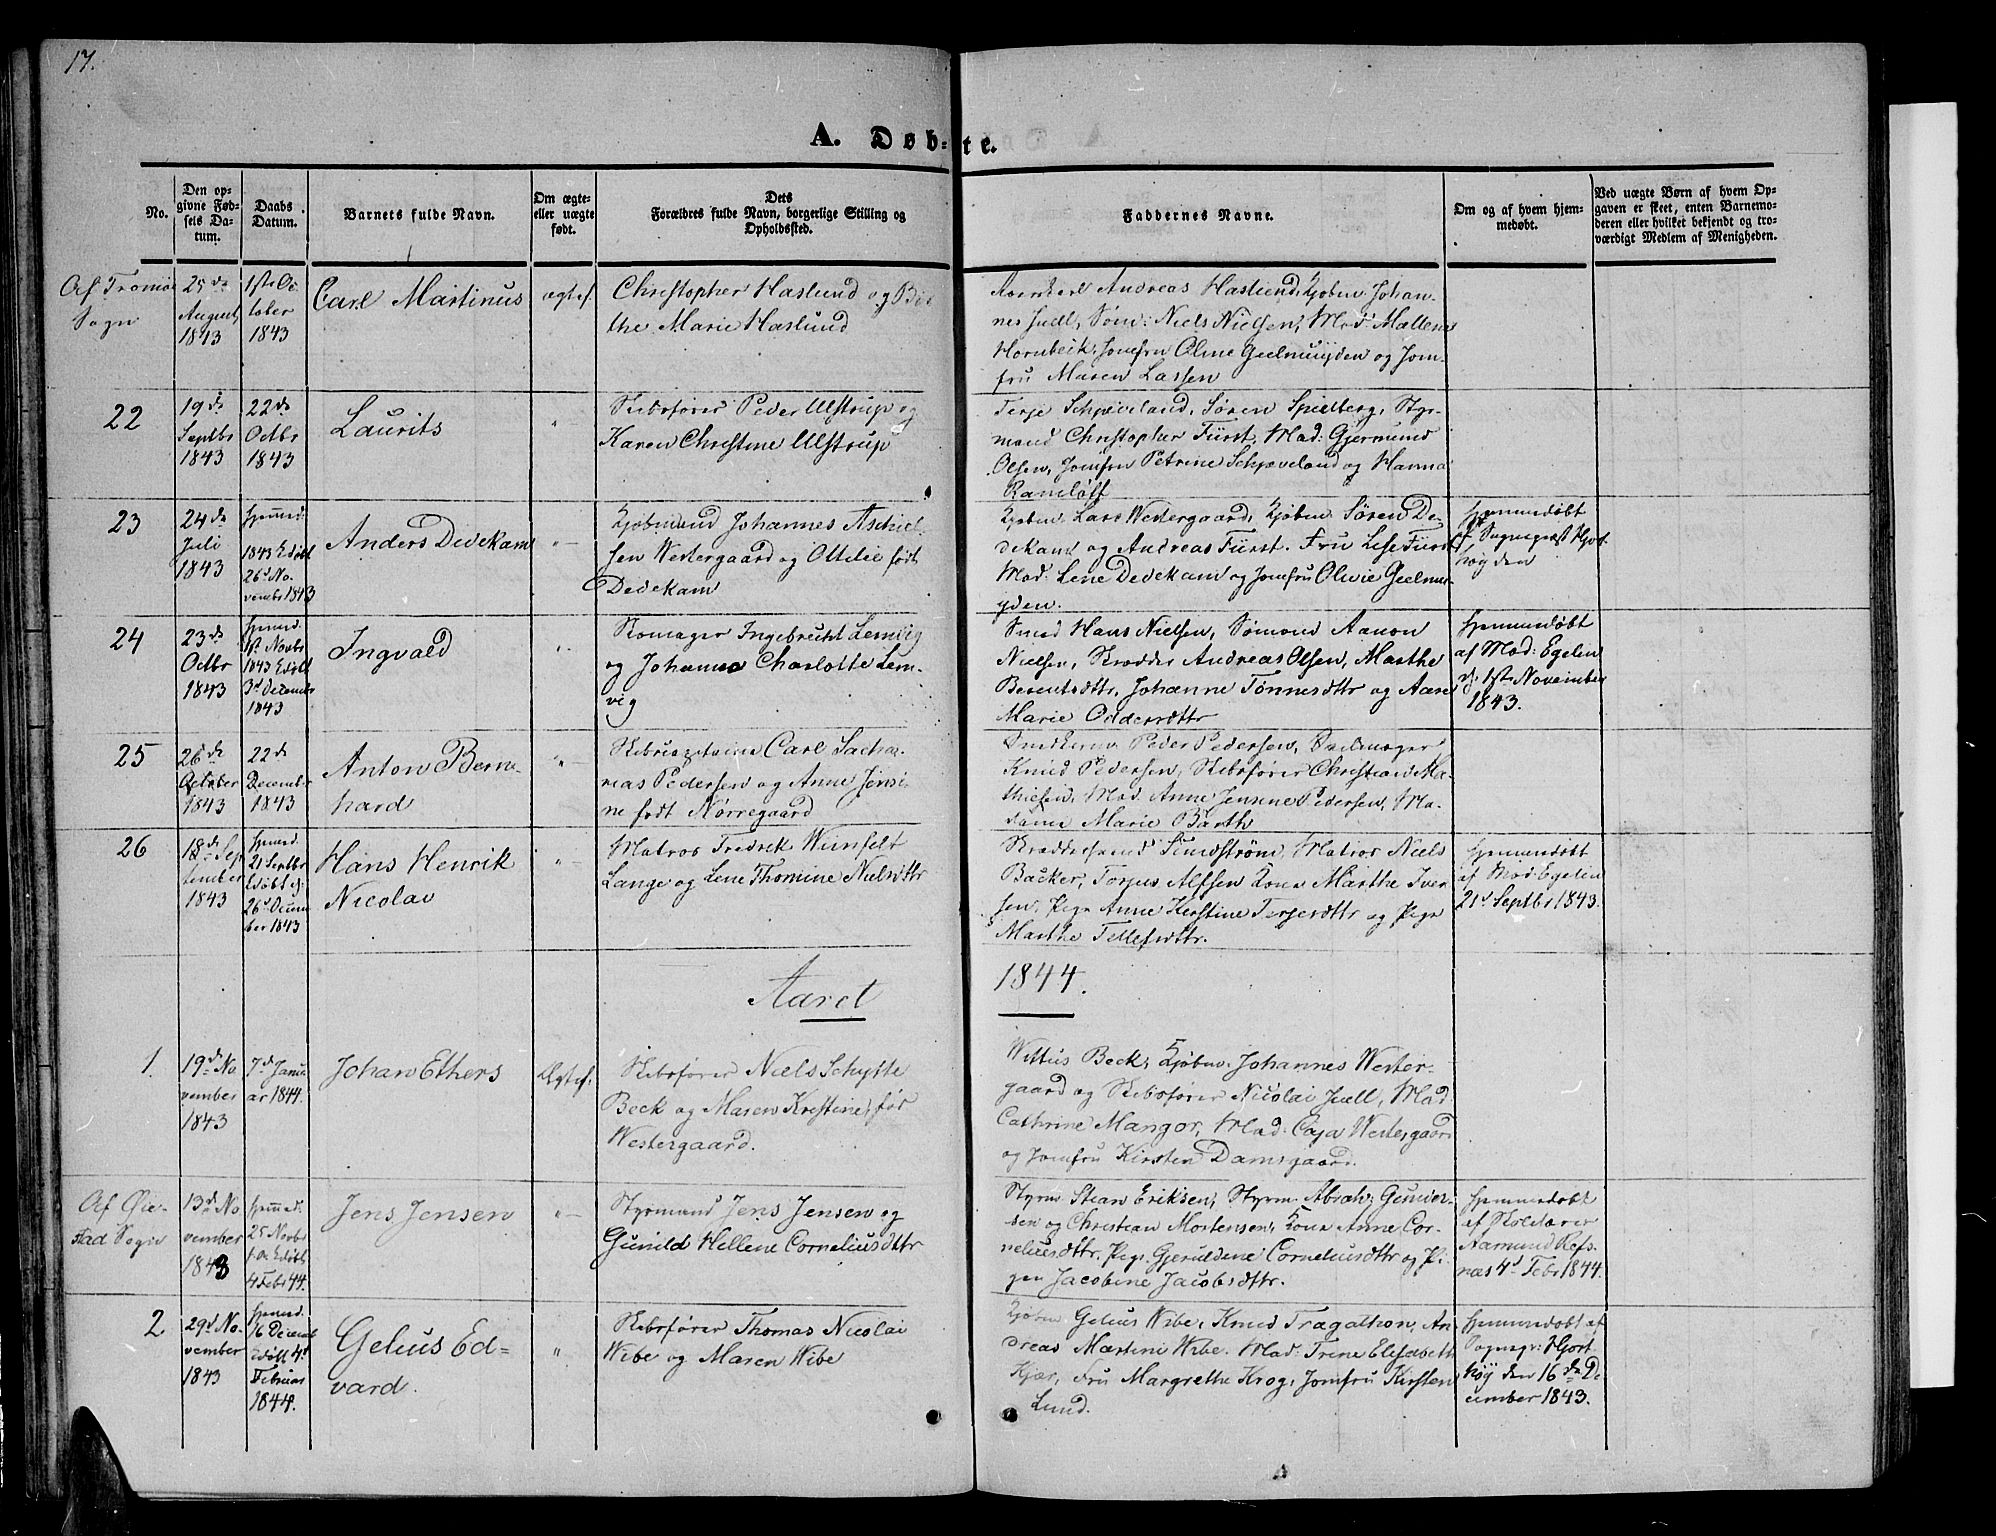 17.
A. Døb-te.
No.
Den op-
givne Fød-
sels Da-
tum.
Daabs
Datum.
Barnets fulde Navn.
Om ægte
eller uægte
født.
Dets
Forældres fulde Navn, borgerlige Stilling og
Opholdssted.
Faddernes Navne.
Om og af hvem hjem-
medøbt.
Ved uægte Børn af hvem Op-
gaven er skeet, enten Barnemo-
deren eller hvilket bekjendt og tro-
værdigt Medlem af Menigheden.
Af Tromø
Sogn
25de
August
1843
1ste Oc
tober
1843
Carl Martinus
ægtef.
Christopher Haslund og Bir
the Marie Haslund
Andreas Haslund, Kjøbm. Johan-
nes Juell, Søm: Niels Nielsen, Mad: Mallena
Hornbeck, Jomfru Oline Geelmuyden og Jom-
fru Maren Lassen
22
19de
Septbr
1843
22de
Octbr
1843
Laurits
"
Skibsfører Peder Ulstrup og
Karen Christine Ulstrup
Terje Schjæveland, Søren Spielberg, Styr-
mand Christopher Fürst, Mad: Gjermund
Olsen, Jomfru Petrine Schjæveland og Hanna
Ramløff
23
24de
Juli
1843
hjemmed.
1843 Edøbt
26d No.
vembr 1843
Anders Dedekam
"
Kjøbmand Johannes Aschiel-
sen Westergaard og Ottilie født
Dedekam
Kjøbm. Lars Westergaard, Kjøbm. Søren De-
dekam og Andreas Fürst. Fru Lise Fürst
Mad: Lene Dedekam og Jomfru Olivie Geelmu-
yden.
Hjemmedøbt
af Sognepræst Hjort
høy den
24
23de
Octbr
1843
hjemmed.
1st Novbr
1843 Edøbt
3d Decembr
1843
Ingvald
"
Skomager Ingebrecht Lemvig
og Johanne Charlotte Lem-
vig
Smed Hans Nielsen, Sømand Aanon
Nielsen, Skrædder Andreas Olsen, Marthe
Berentsdttr, Johanne Tønnesdttr og Aase
Marie Oddersdttr
Hjemmedøbt
af Mad: Egelen
d. 1ste November
1843.
25
26de
October
1843
22de
December
1843
Anton Bern-
hard
"
Skibscaptain Carl Sacha-
rias Pedersen og Anne Jensi-
ne født Nørregaard
Peder Pedersen, Seilmager
Knud Pedersen, Skibsfører Christian Ma-
thiesen, Mad. Anne Jensine Pedersen, Ma-
dame Marie Barth
26
18de Sep
tember
1843
hjemmed.
21 Septbr
Edøbt
26d Decem
ber 1843
Hans Henrik
Nicolai
"
Matros Fredrik Wimfelt
Lange og Lene Thomine Nielsdttr
Skræddersvend Lindstrøm, Matros Niels
Backer, Torjus Alfsen Kone Marthe Iver
sen, Pige Anne Kirstine Terjesdttr og Pige
Marthe Tellefsdttr.
Hjemmedøbt
af Mad: Egelen
21d Septbr 1843.
Aaret
1844.
1.
19de No
vember
1843
7d Janu
ar 1844.
Johan Ethers
Ægtef.
Skibsfører Niels Schytte
Beck og Maren Kirstine, før
Westergaard.
Wittus Beck, Kjøbm. Johannes Wester-
gaard og Skibsfører Nicolai Juell, Mad
Cathrine Mangor, Mad: Caja Westergaar
og Jomfru Kirsten Damsgaard.
Af Øie-
stad Sogn
13de No
vember
1843
hjemmed.
25 Novbr
Edøbt
4 Febr 44.
Jens Jensen
"
Styrmand Jens Jensen og
Gunild Hellene Corneliusdttr
Styrm Stian Eriksen, Styrm. Abrah: Gunder-
sen og Christian Mortensen, Kone Anne Cor-
neliusdttr, Pige Gjeruldine Corneliusdttr og Pi-
gen Jacobine Jacobsdttr.
Hjemmedøbt
af Skolelærer
Aamund Refs-
næs 4d Febr 1844.
2
29d No-
vember
1843
hjemmed.
16 Decemb
Edøbt 4d
Februar
1844.
Gelius Ed-
vard.
"
Skibsfører Thomas Nicolai
Wibe og Maren Wibe
Kjøbm. Gelius Wibe, Knud Tragathon, An
dreas Martini Wibe. Mad: Trine Elisabeth
Kjær, Fru Margrethe Krog, Jomfru Kirsten
Lund.
Hjemmedøbt af
Sognepr: Hjort
høy den 16de De
cember 1843.